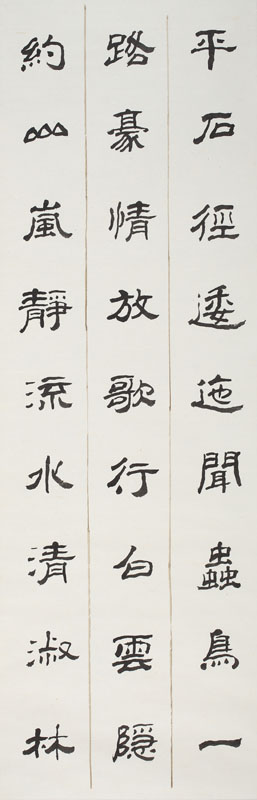 平石徑逶迤聞蟲鳥一
路豪情放歌行白雲隱
約山嵐靜流水清淑林